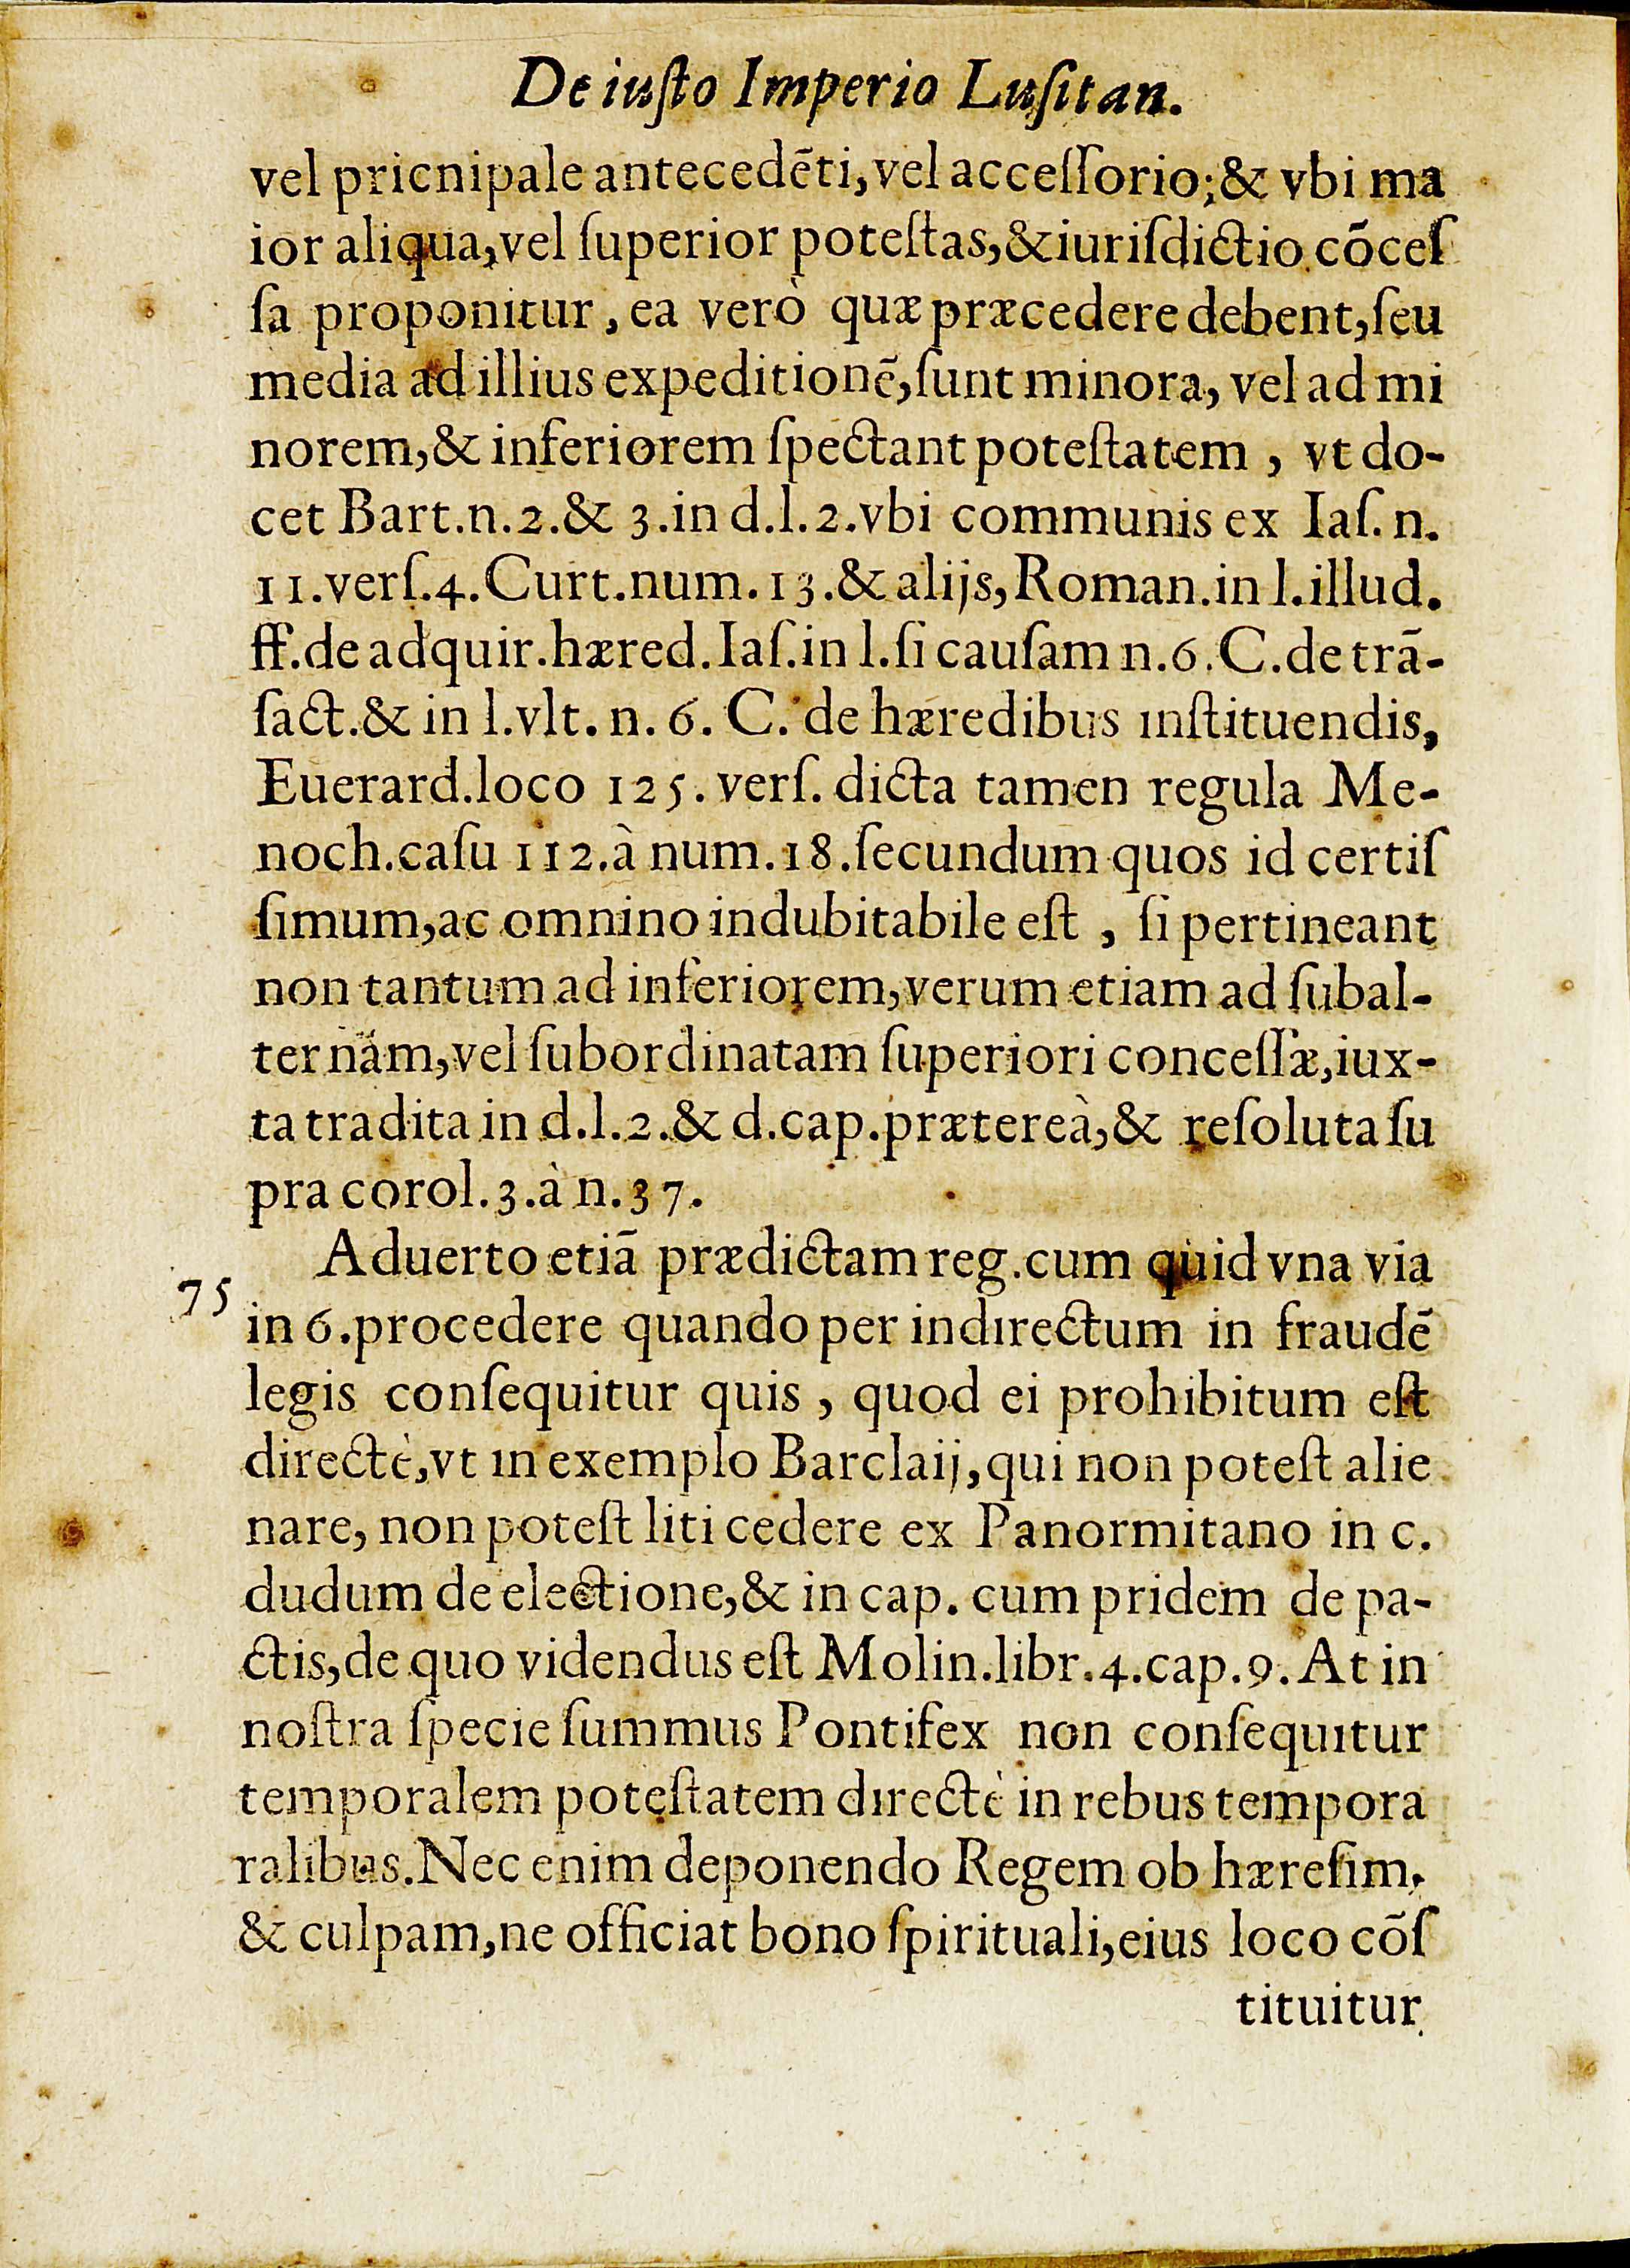 De iuſto Imperio Luſitan.
vel pricnipale antecedēti, vel acceſſorio; & vbi ma
ior aliqua, vel ſuperior poteſtas, & iuriſdictio cōceſ
ſa proponitur, ea verò quæ præcedere debent, ſeu
media ad illius expeditionē, ſunt minora, vel ad mi
norem, & inferiorem ſpectant poteſtatem, vt do-
cet Bart. n. 2. & 3. in d. l. 2. vbi communis ex Iaſ. n.
11. verſ. 4. Curt. num. 13. & alijs, Roman. in l. illud.
ff. de adquir. hæred. Iaſ. in l. ſi cauſam n. 6. C. de trā-
ſact. & in l. vlt. n. 6. C. de hæredibus inſtituendis,
Euerard. loco 125. verſ. dicta tamen regula Me-
noch. caſu 112. à num. 18. ſecundum quos id certiſ
ſimum, ac omnino indubitabile eſt, ſi pertineant
non tantum ad inferiorem, verum etiam ad ſubal-
ternam, vel ſubordinatam ſuperiori conceſſæ, iux-
ta tradita in d. l. 2. & d. cap. prætereà, & reſoluta ſu
pra corol. 3. à n. 37.
Aduerto etiā prædictam reg. cum quid vna via
75
in 6. procedere quando per indirectum in fraudē
legis conſequitur quis, quod ei prohibitum eſt
directè, vt in exemplo Barclaij, qui non poteſt alie
nare, non poteſt liti cedere ex Panormitano in c.
dudum de electione, & in cap. cum pridem de pa-
ctis, de quo videndus eſt Molin. libr. 4. cap. 9. At in
noſtra ſpecie ſummus Pontifex non conſequitur
temporalem poteſtatem directè in rebus tempora
ralibus. Nec enim deponendo Regem ob hæreſim,
& culpam, ne officiat bono ſpirituali, eius loco cōſ
tituitur